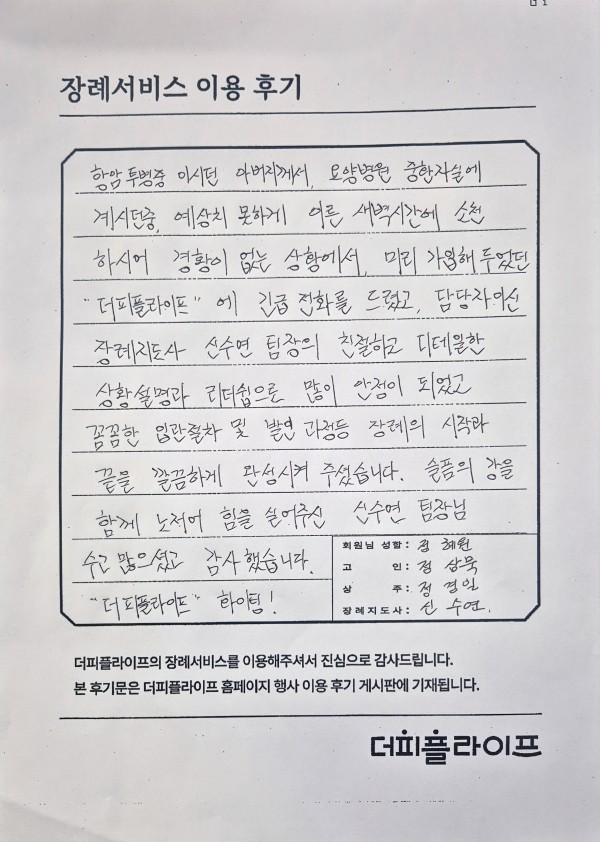 장례서비스 이용 후기
항암 투병중 이시던 아버지께서, 요양병원 중환자실에
계시던중, 예상치 못하게 이른 새벽시간에 소천
하시어 경황이 없는 상황에서, 미리 가입해 두었던
"더피플라이프" 에 긴급 전화를 드렸고, 담당자이신
장례지도사 신수연 팀장의 친절하고 디테일한
상황설명과 리더쉽으로 많이 안정이 되었고
꼼꼼한 입관절차 및 발인 과정등 장례의 시작과
끝을 깔끔하게 완성시켜 주셨습니다. 슬픔의 강을
함께 노저어 힘을 실어주신 신수연 팀장님
수고 많으셨고 감사했습니다.
"더피플라이프" 화이팅!
회원님 성함: 정혜원
고 인: 정상묵
상 주: 정경일
장례지도사: 신수연.
더피플라이프의 장례서비스를 이용해주셔서 진심으로 감사드립니다.
본 후기문은 더피플라이프 홈페이지 행사 이용 후기 게시판에 기재됩니다.
더피플라이프